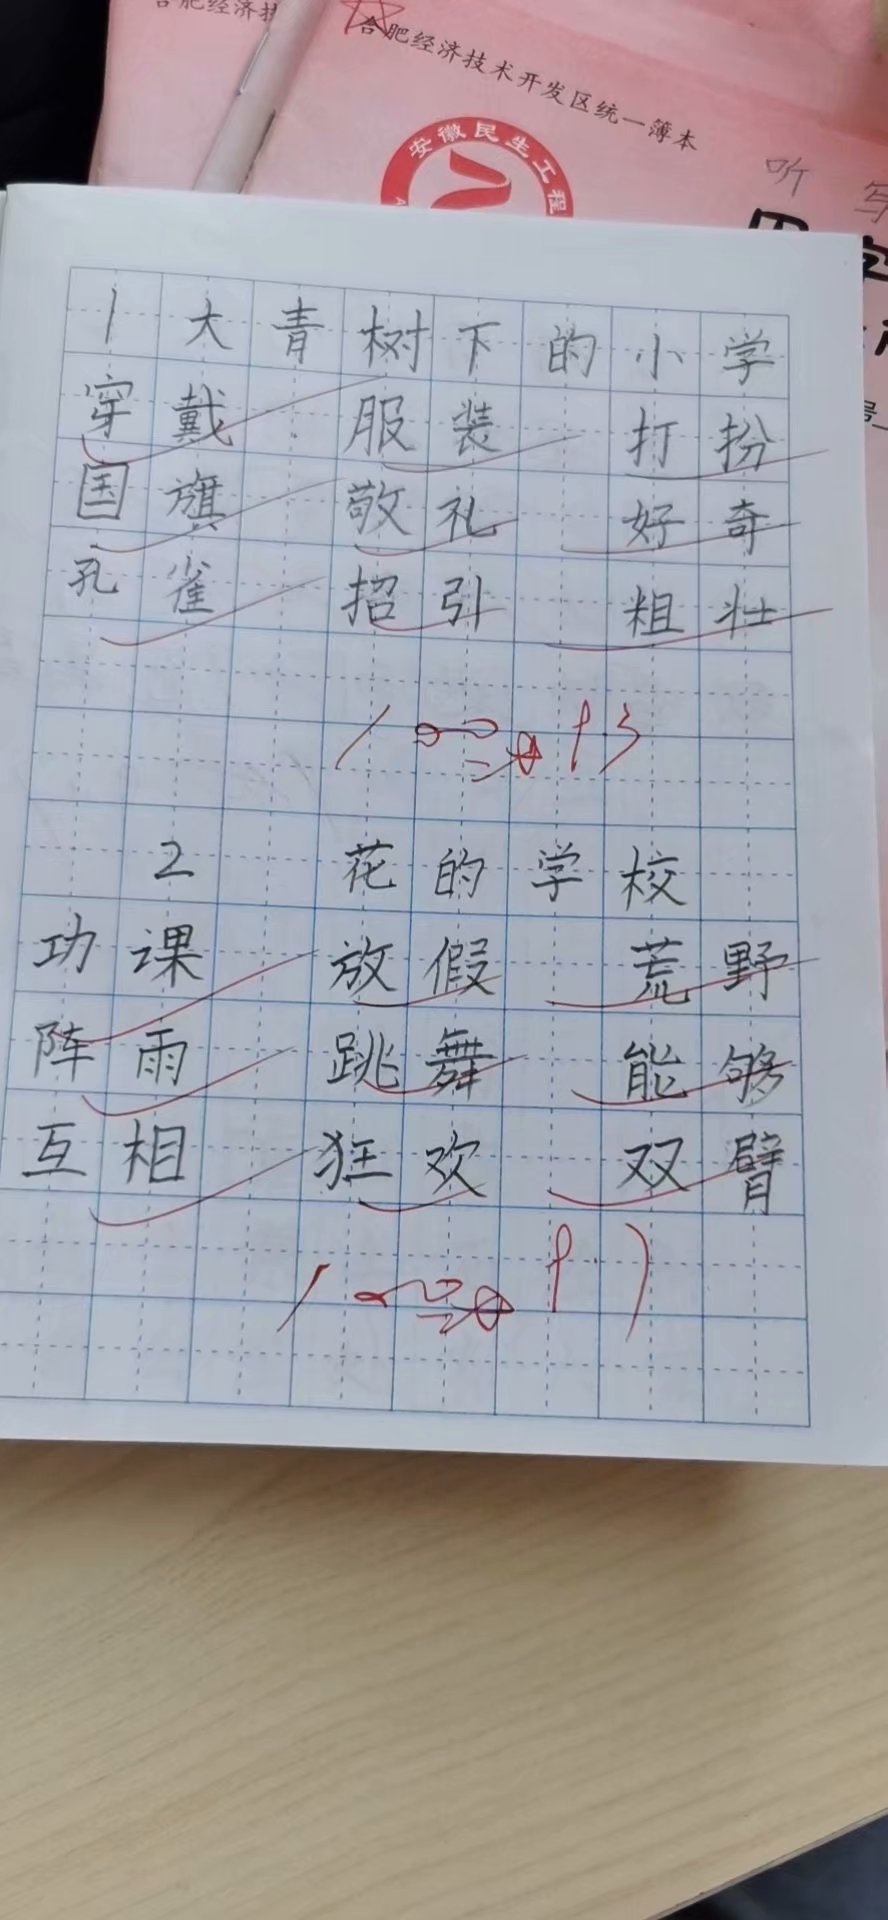 合肥经济技
合肥经济技术开发区统一簿本
安徽民生工程
听 写
1 大青树下的小学
穿戴 服装 打扮
国旗 敬礼 好奇
孔雀 招引 粗壮
100 9.3
2 花的学校
功课 放假 荒野
阵雨 跳舞 能够
互相 狂欢 双臂
100 9.7